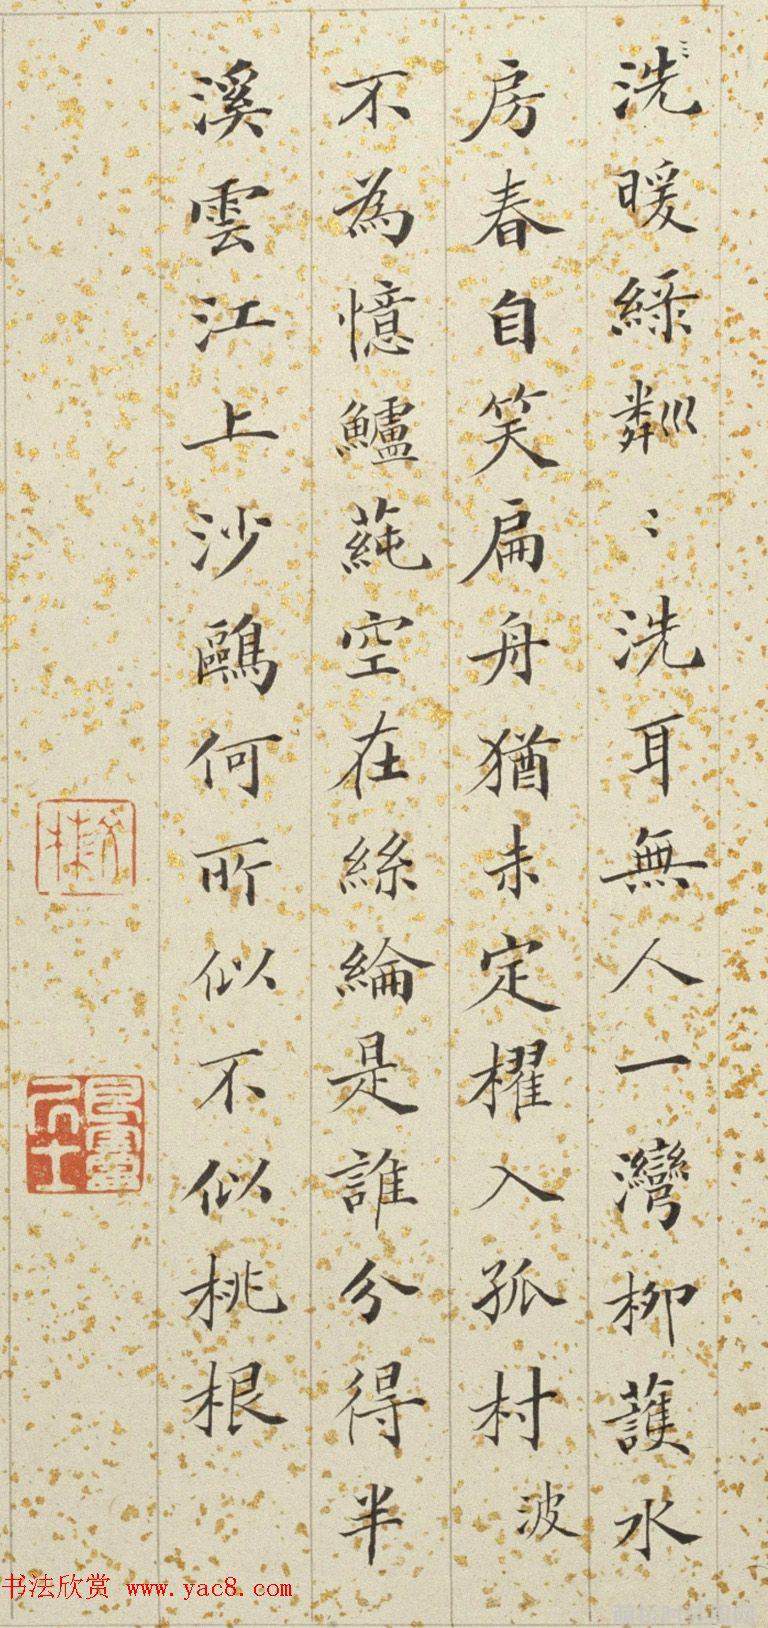 洗暖綵粼〻洗耳無人一灣柳蔭水
房春自笑扁舟猶未定櫂入孤村波
不為憶鱸蓴空在絲綸是誰分得半
溪雲江上沙鷗何所似不似桃根
书法欣赏 www.yac8.com